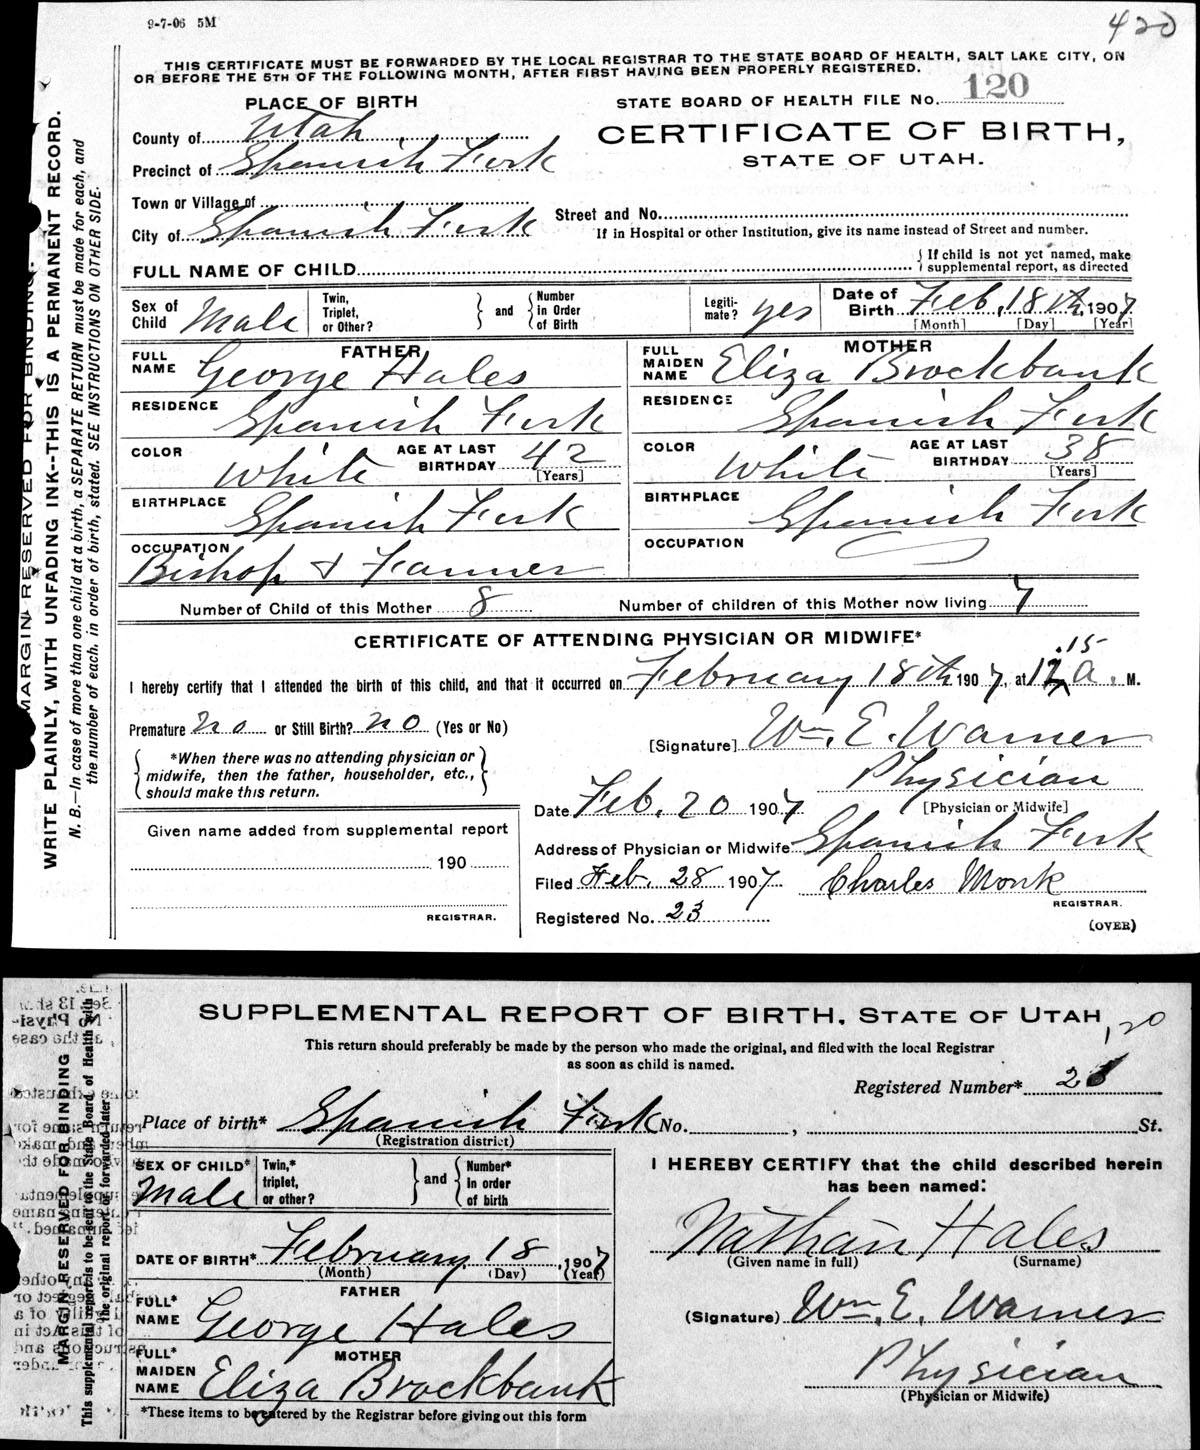 9-7-06 5M
420
THIS CERTIFICATE MUST BE FORWARDED BY THE LOCAL REGISTRAR TO THE STATE BOARD OF HEALTH, SALT LAKE CITY, ON
OR BEFORE THE 5TH OF THE FOLLOWING MONTH, AFTER FIRST HAVING BEEN PROPERLY REGISTERED.
MARGIN RESERVED FOR BINDING.
WRITE PLAINLY, WITH UNFADING INK--THIS IS A PERMANENT RECORD.
N. B.—In case of more than one child at a birth, a SEPARATE RETURN must be made for each, and
the number of each, in order of birth, stated. SEE INSTRUCTIONS ON OTHER SIDE.
PLACE OF BIRTH
STATE BOARD OF HEALTH FILE No. 120
County of Utah
CERTIFICATE OF BIRTH,
STATE OF UTAH.
Precinct of Spanish Fork
Town or Village of
City of Spanish Fork
Street and No.
If in Hospital or other Institution, give its name instead of Street and number.
FULL NAME OF CHILD
If child is not yet named, make
supplemental report, as directed
Sex of Child Male
Twin, Triplet, or Other?
and
Number in Order of Birth
Legiti-mate? yes
Date of Birth Feb. 18th, 1907
[Month] [Day] [Year]
FATHER
FULL NAME George Hales
MOTHER
FULL MAIDEN NAME Eliza Brockbank
RESIDENCE Spanish Fork
RESIDENCE Spanish Fork
COLOR White
AGE AT LAST BIRTHDAY 42
[Years]
COLOR White
AGE AT LAST BIRTHDAY 38
[Years]
BIRTHPLACE Spanish Fork
BIRTHPLACE Spanish Fork
OCCUPATION
Bishop & Farmer
OCCUPATION
Number of Child of this Mother 8
Number of children of this Mother now living 7
CERTIFICATE OF ATTENDING PHYSICIAN OR MIDWIFE*
I hereby certify that I attended the birth of this child, and that it occurred on February 18th 1907, at 12.15 a. M.
Premature no or Still Birth? no (Yes or No)
[Signature] Wm. E. Warner
*When there was no attending physician or
midwife, then the father, householder, etc.,
should make this return.
Physician
[Physician or Midwife]
Date Feb. 20 1907
Given name added from supplemental report
190
REGISTRAR.
Address of Physician or Midwife Spanish Fork
Filed Feb. 28 1907 Charles Monk
REGISTRAR.
Registered No. 23
(OVER)
SUPPLEMENTAL REPORT OF BIRTH, STATE OF UTAH
120
This return should preferably be made by the person who made the original, and filed with the local Registrar
as soon as child is named.
MARGIN RESERVED FOR BINDING
This supplemental report is to be sent to the State Board of Health with
the original report or forwarded later
Registered Number* 23
Place of birth* Spanish Fork No. , St.
(Registration district)
SEX OF CHILD*
Male
Twin,* triplet, or other?
and
Number* in order of birth
I HEREBY CERTIFY that the child described herein
has been named:
Nathan Hales
(Given name in full) (Surname)
DATE OF BIRTH* February 18, 1907
(Month) (Day) (Year)
FATHER
FULL* NAME George Hales
(Signature) Wm. E. Warner
MOTHER
FULL* MAIDEN NAME Eliza Brockbank
Physician
(Physician or Midwife)
*These items to be entered by the Registrar before giving out this form